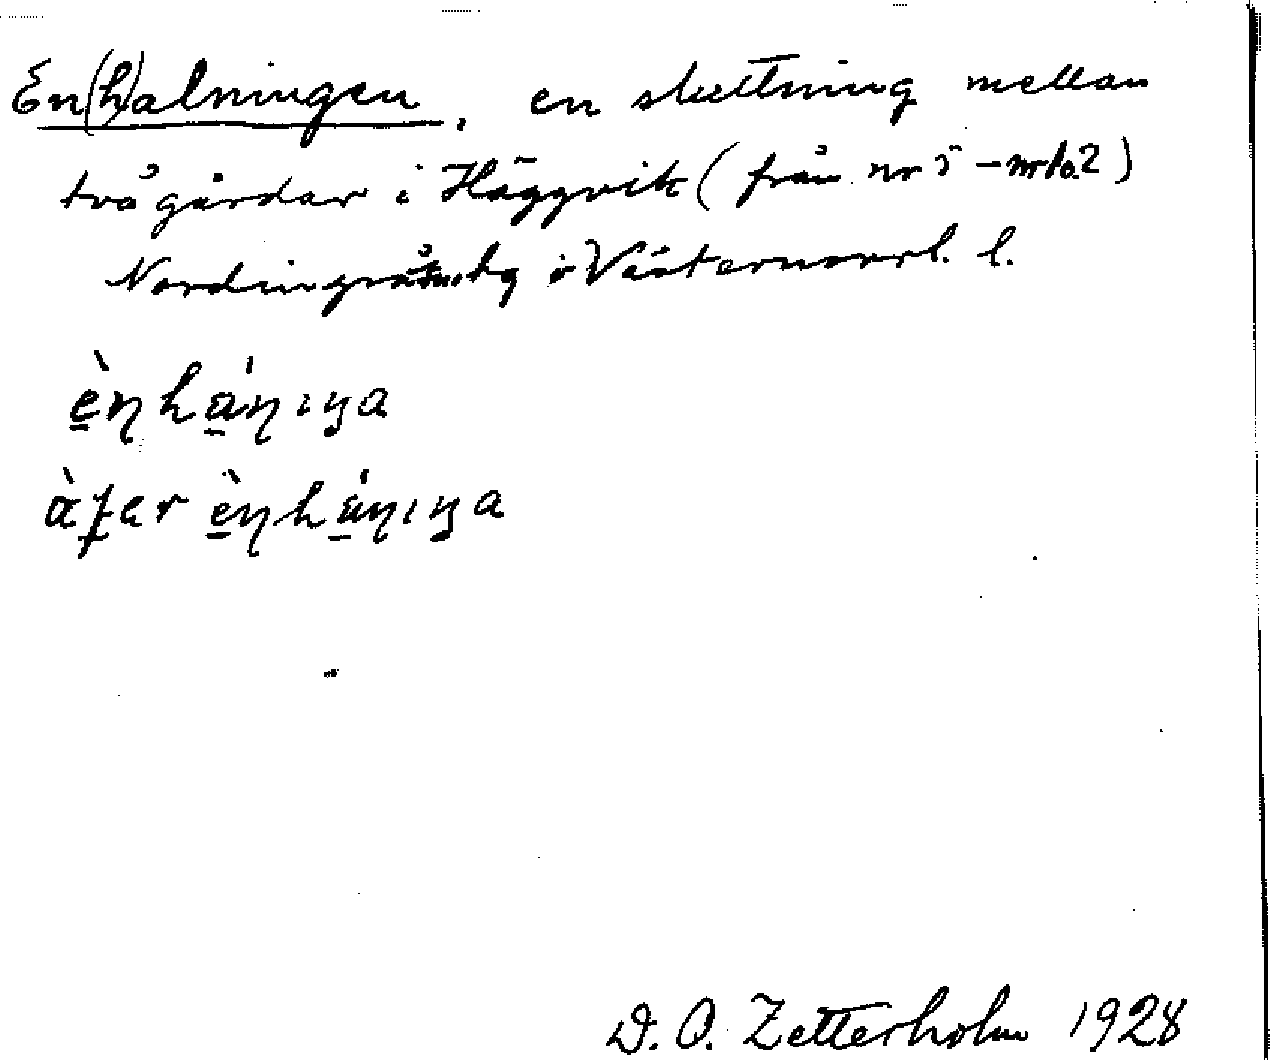 En(h)alningen, en sluttning mellan
två gårdar i Häggvik (från nr 5 – nr 1o.2)
Nordingrå sn i Västernorrl. l.
ὲn̥hánıŋa
àt̠er ὲn̥hánıŋa
D. O. Zetterholm 1928